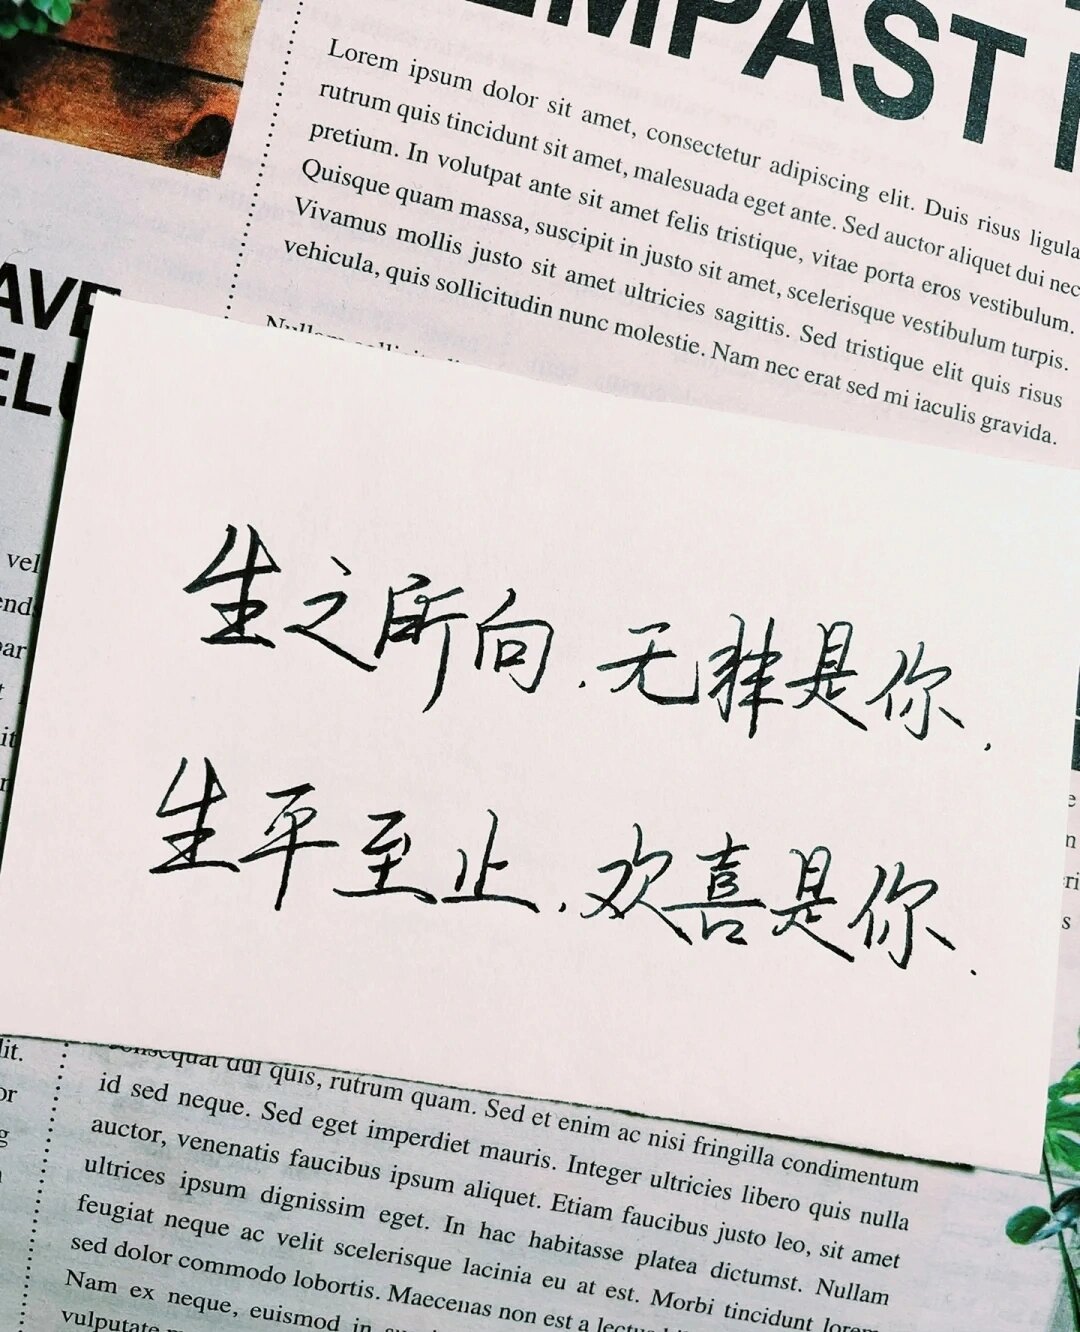 EMPAST
Lorem ipsum dolor sit amet, consectetur adipiscing elit. Duis risus ligula
rutrum quis tincidunt sit amet, malesuada eget ante. Sed auctor aliquet dui nec
pretium. In volutpat ante sit amet felis tristique, vitae porta eros vestibulum.
Quisque quam massa, suscipit in justo sit amet, scelerisque vestibulum turpis.
Vivamus mollis justo sit amet ultricies sagittis. Sed tristique elit quis risus
vehicula, quis sollicitudin nunc molestie. Nam nec erat sed mi iaculis gravida.
AVE
ELU
vel
生之所向,无肄是你,
生平至止,欢喜是你.
consequat dui quis, rutrum quam. Sed et enim ac nisi fringilla condimentum
id sed neque. Sed eget imperdiet mauris. Integer ultricies libero quis nulla
auctor, venenatis faucibus ipsum aliquet. Etiam faucibus justo leo, sit amet
ultrices ipsum dignissim eget. In hac habitasse platea dictumst. Nullam
feugiat neque ac velit scelerisque lacinia eu at est. Morbi tincidunt lorem
sed dolor commodo lobortis. Maecenas non est a
Nam ex neque, euismod in
vulputate